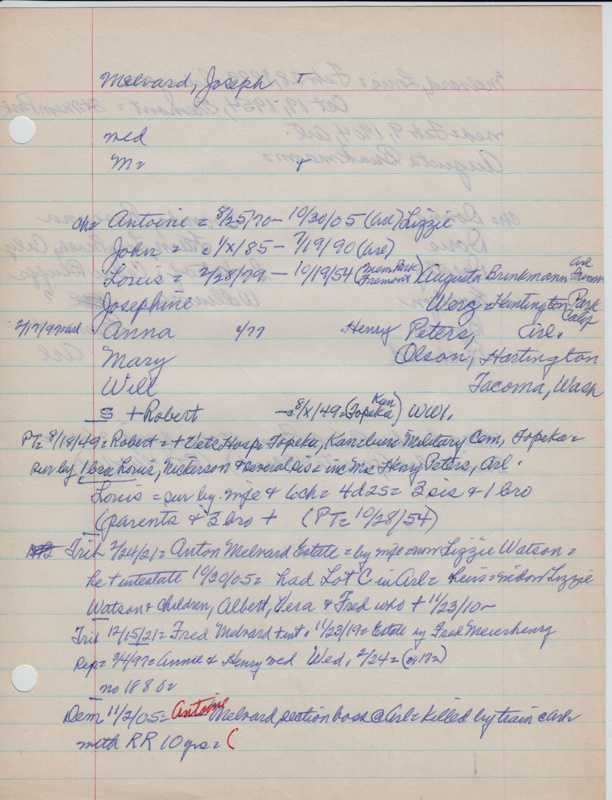 Melvard, Joseph T
med
M=
ch= Antoine = 8/25/70 - 10/30/05 (Arl) Lizzie
John = = 1/X/85 - 7/19/90 (Arl)
Louis = 2/28/79 - 10/19/54 (Mem Park Fremont) Augusta Brinkmann Arl
Josephine Werg = Huntington Park Calif
2/17/97 Arl Anna 4/77 Henry Peters, Arl.
Mary Olson, Hartington
Will Tacoma, Wash
S + Robert - = 8/X/49 = (Topeka Kan) WWI.
PT= 8/19/49 = Robert = + Vets Hosp = Topeka, Kan = buri= Military Cem, Topeka =
sur by 1 bro Louis, Nickerson & several sis = inc Mrs Henry Peters, Arl.
Louis = sur by wife & 6 ch = 4d 2s = 3 sis & 1 bro
(parents & 3 bro + (PT= 10/28/54)
Trib 2/24/21 = Anton Melvard Estate = by wife own Lizzie Watson =
he + intestate 10/30/05 = had Lot C in Arl = heirs = widow Lizzie
Watson & children, Albert, Vera & Fred who + 11/23/10 -
Trib 12/15/21 = Fred Melvard + int. 11/23/19 = Estate by Fred Meierhenry
Rep = 3/4/97 = Annie & Henry med Wed, 2/24 =
no 188 0=
Dem 11/2/05 = Antoine Melvard, section boss @ Arl = killed by train car =
with RR 10 yrs = (